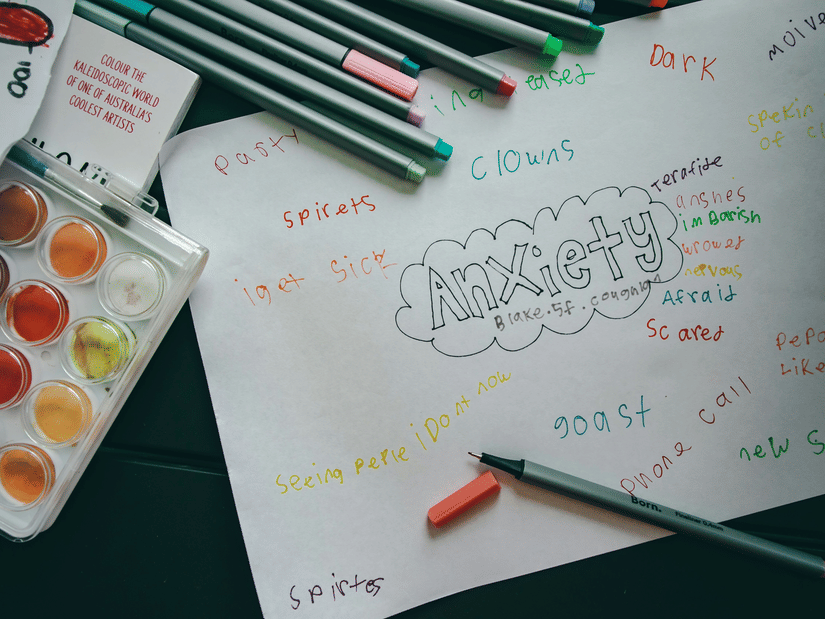 COLOUR THE
KALEIDOSCOPIC WORLD
OF ONE OF AUSTRALIA'S
COOLEST ARTISTS
Party
ing eases
Dark
moive
spekin
of cl
clowns
spirets
iget sick
Anxiety
Blake.5f.coughlan
Terafide
anshes
imBarish
wrowet
nervous
Afraid
Scared
pepo
Like
seeing peple iDont now
goast
phone call
new S
Born.
Fineliner 0.4mm
spirtes